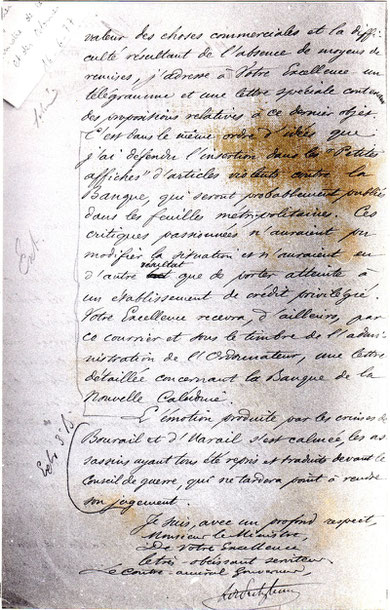 valeur des choses commerciales et la diffi-
culté résultant de l'absence de moyens de
remises, j'adresse à Votre Excellence un
télégramme et une lettre spéciale contenant
des propositions relatives à ce dernier objet.
C'est dans le même ordre d'idées que
j'ai défendu l'insertion dans les "Petites
affiches" d'articles violents contre la
Banque, qui seront probablement publiés
dans les feuilles métropolitaines. Ces
critiques passionnées n'auraient pu
modifier la situation et n'auraient eu
résultat
d'autre que de porter atteinte
à un établissement de crédit privilégié.
Votre Excellence recevra, d'ailleurs, par
ce courrier et sous le timbre de l'admi-
nistration de l'Ordonnateur, une lettre
détaillée concernant la Banque de la
Nouvelle Calédonie.
L'émotion produite par les crimes de
Bourail et d'Uarail s'est calmée, les as-
sassins ayant tous été repris et traduits devant le
Conseil de guerre, qui ne tardera point à rendre
son jugement.
Je suis, avec un profond respect,
Monsieur le Ministre,
De Votre Excellence
le très obéissant serviteur
Le Contre-amiral Gouverneur,
Ext.